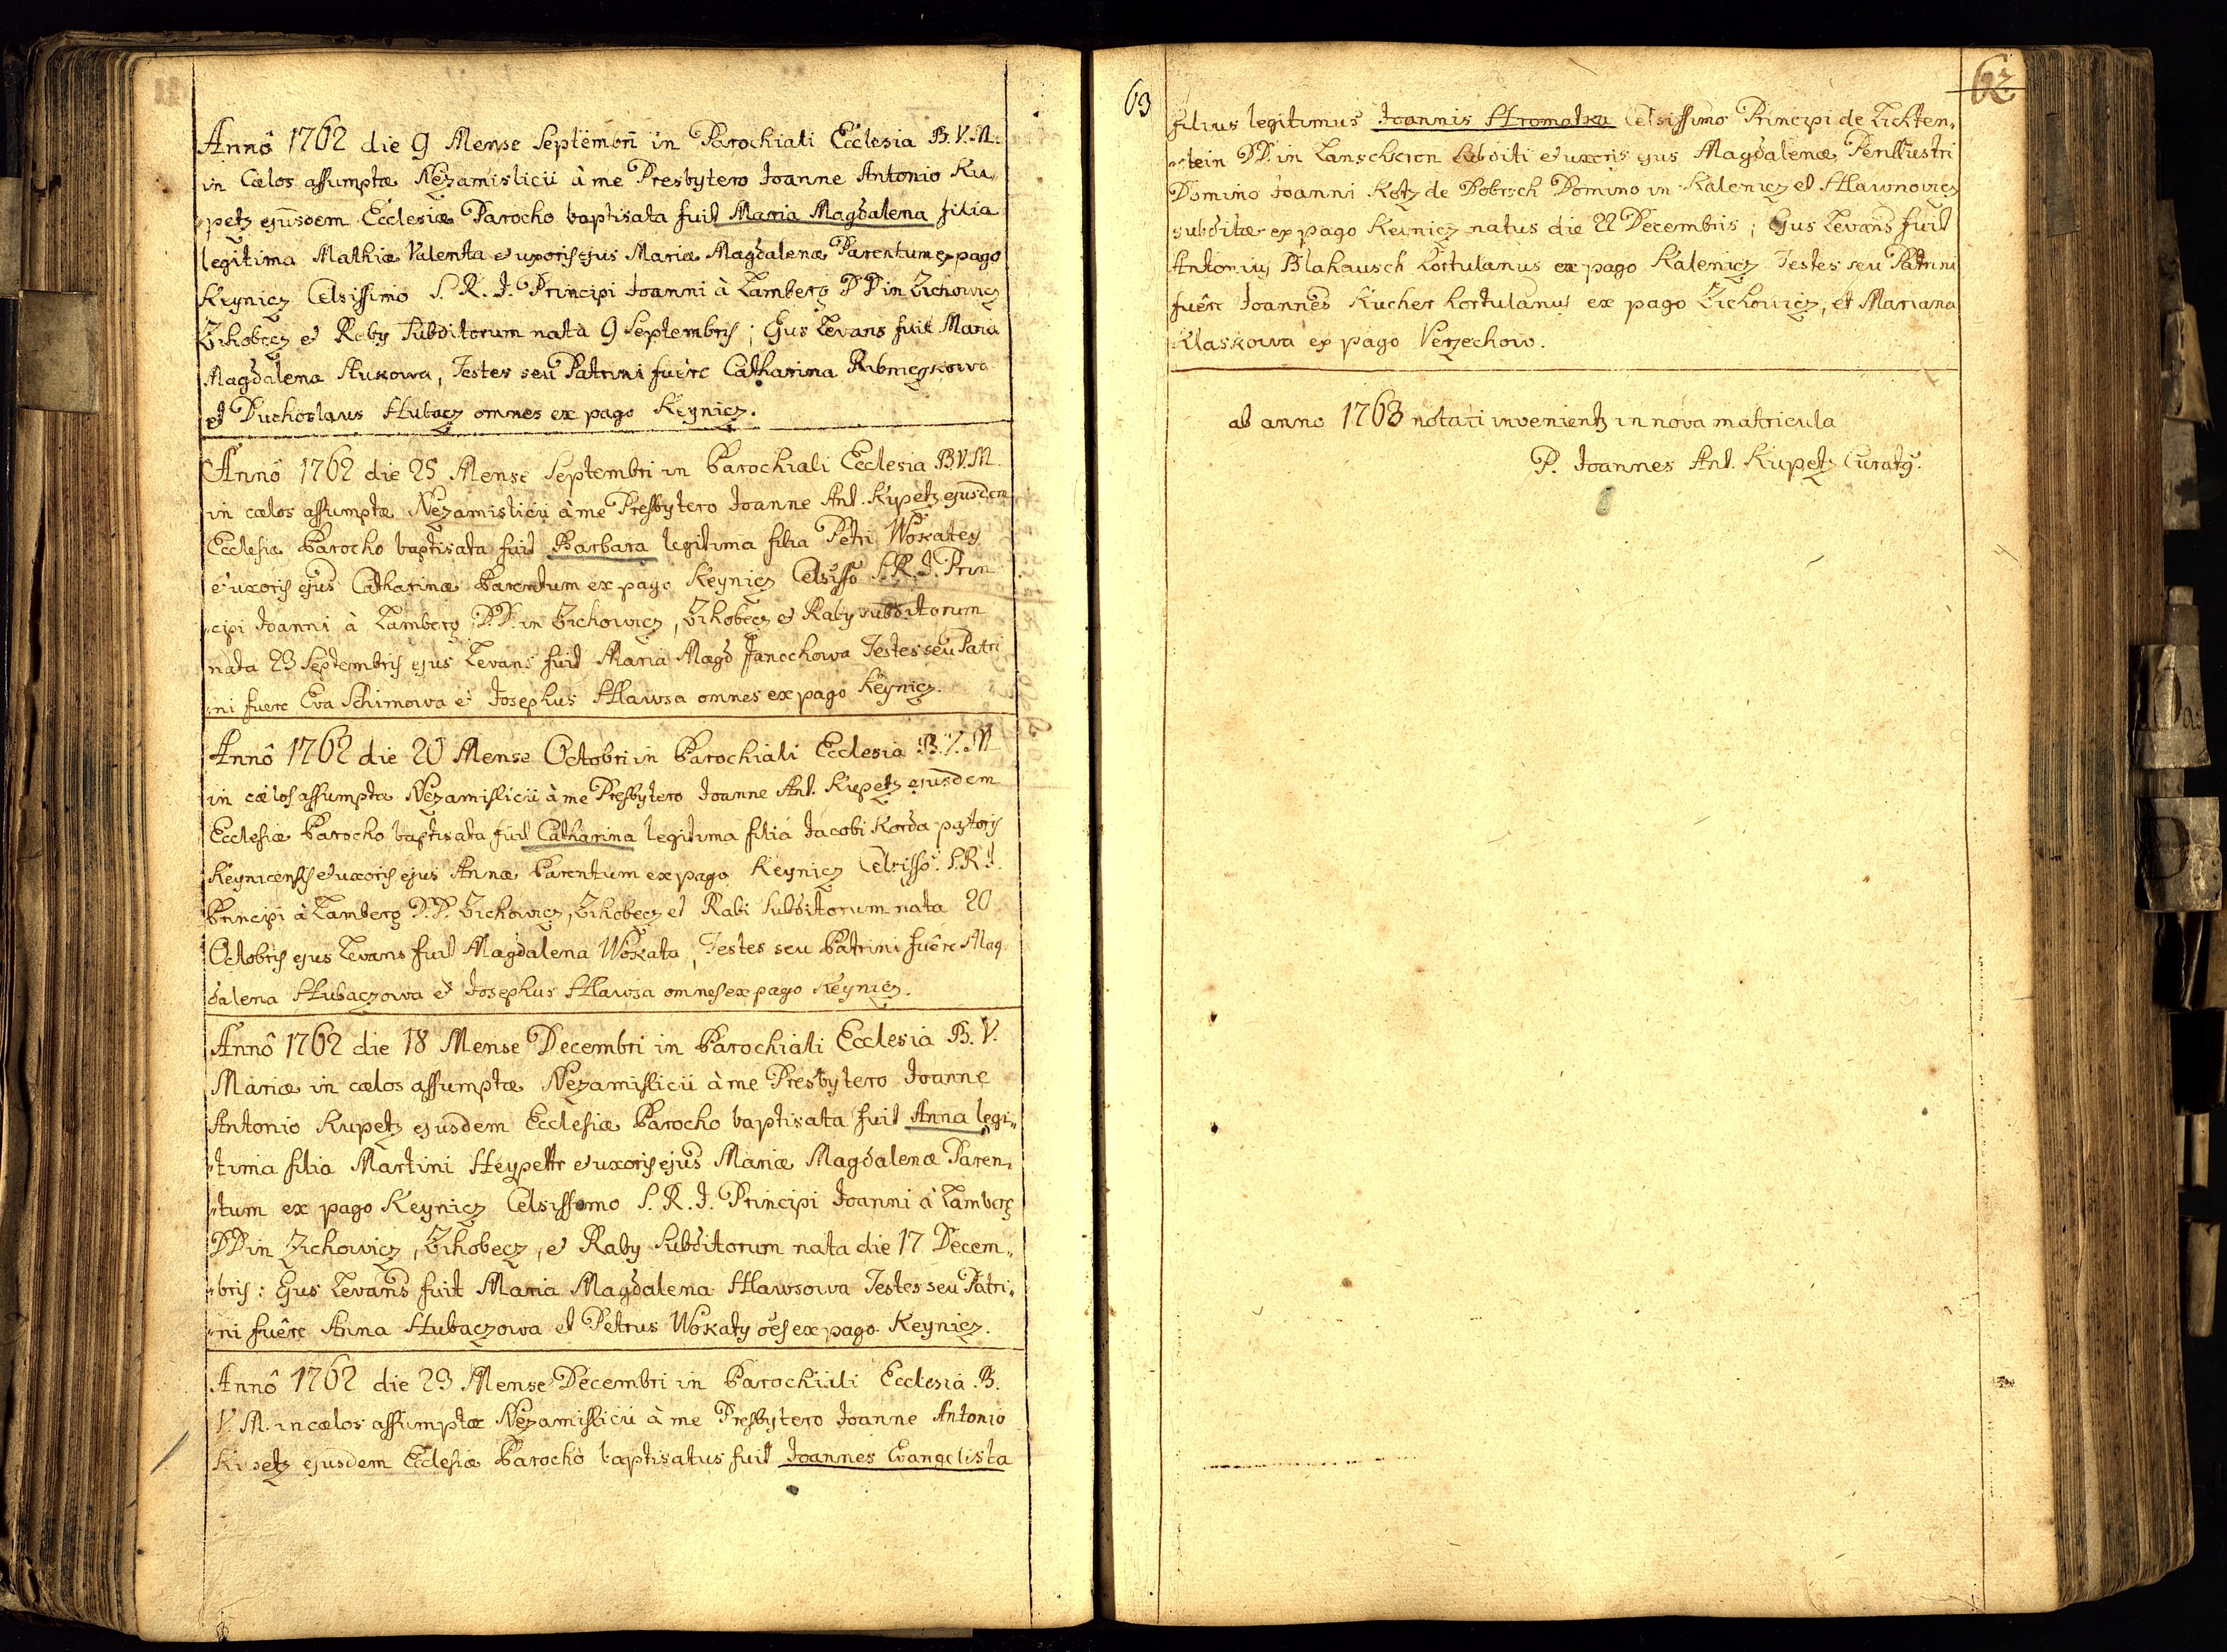 Annô 1762 die 9 Mense Septembri in Parochiali Ecclesia B. V. M.
in Cælos assumptæ Nezamislicii à me Presbytero Joanne Antonio Ku„
„petz ejusdem Ecclesiæ Parocho baptisata fuit Maria Magdalena filia
legitima Mathiæ Valenta et uxoris ejus Mariæ Magdalenæ Parentum ex pago
Keynicz Celsissimo S. R. I. Principi Joanni à Lamberg DD in Zichowicz
Zihobecz et Raby Subditorum nata 9 Septembris; Ejus Levans fuit Maria
Magdalena Stukowa, Testes seu Patrini fuêre Catharina
et Duchoslaus Hubacz omnes ex pago Keynicz.
Annô 1762 die 25 Mense Septembri in Parochiali Ecclesia B. V. M.
in cælos assumptæ Nezamislicii à me Presbytero Joanne Ant. Kupetz ejusdem
Ecclesiæ Parocho baptisata fuit Barbara legitima filia Petri Wokaty
et uxoris ejus Catharinæ Parentum ex pago Keynicz Celsisso S. R. I. Prin„
„cipi Joanni à Lamberg D.D. in Zichowicz, Zihobecz et Raby subditorum
nata 23 Septembris ejus Levans fuit Maria Magd Janochowa Testes seu Patri
„ni fuere Eva Schimowa et Josephus Hlawsa omnes ex pago Keynicz.
Annô 1762 die 20 Mense Octobri in Parochiali Ecclesia B. V. M
in cælos assumptæ Nezamislicii à me Presbytero Joanne Ant. Kupetz ejusdem
Ecclesiæ Parocho baptisata fuit Catharina legitima filia Jacobi Korda pastoris
Keynicensis et uxoris ejus Annæ Parentum ex pago Keynicz Celsisso. S. R. I.
Principi à Lamberg D.D. Zichowicz, Zihobecz et Rabi Subditorum nata 20
Octobris ejus Levans fuit Magdalena Wokata, Testes seu Patrini fuêre Mag„
dalena Hubaczowa et Josephus Hlawsa omnes ex pago Keynicz.
Annô 1762 die 18 Mense Decembri in Parochiali Ecclesia B. V.
Mariæ in cælos assumptæ Nezamislicii à me Presbytero Joanne
Antonio Kupetz ejusdem Ecclesiæ Parocho baptisata fuit Anna legi„
„tima filia Martini Heypetr et uxoris ejus Mariæ Magdalenæ Paren„
„tum ex pago Keynicz Celsissimo S. R. I. Principi Joanni à Lamberg
DD in Zichowicz, Zihobecz, et Raby Subditorum nata die 17 Decem„
„bris: Ejus Levans fuit Maria Magdalena Hlawsowa Testes seu Patri„
„ni fuêre Anna Hubaczowa et Petrus Wokaty oës ex pago Keynicz.
Annô 1762 die 23 Mense Decembri in Parochiali Ecclesia B.
V. M. in cælos assumptæ Nezamislicii à me Presbytero Joanne Antonio
Kupetz ejusdem Ecclesiæ Parocho baptisatus fuit Joannes Evangelista
63
62
filius legitimus Joannis Hromatka Celsissimo Principi de Lichten„
„stein DD. in Lanschkron Subditi et uxoris ejus Magdalenæ Perillustri
Domino Joanni Kotz de Dobrsch Domino in Kalenicz et Hlawnowicz
subditæ ex pago Keynicz natus die 22 Decembris; Ejus Levans fuit
Antonius Blahausch hortulanus ex pago Kalenicz Testes seu Patrini
fuêre Joannes Kucher hortulanus ex pago Zichowicz, et Mariana
Klaskowa ex pago Verzechow.
ab anno 1763 notati invenients in nova matricula
P. Joannes Ant. Kupetz Curatg.